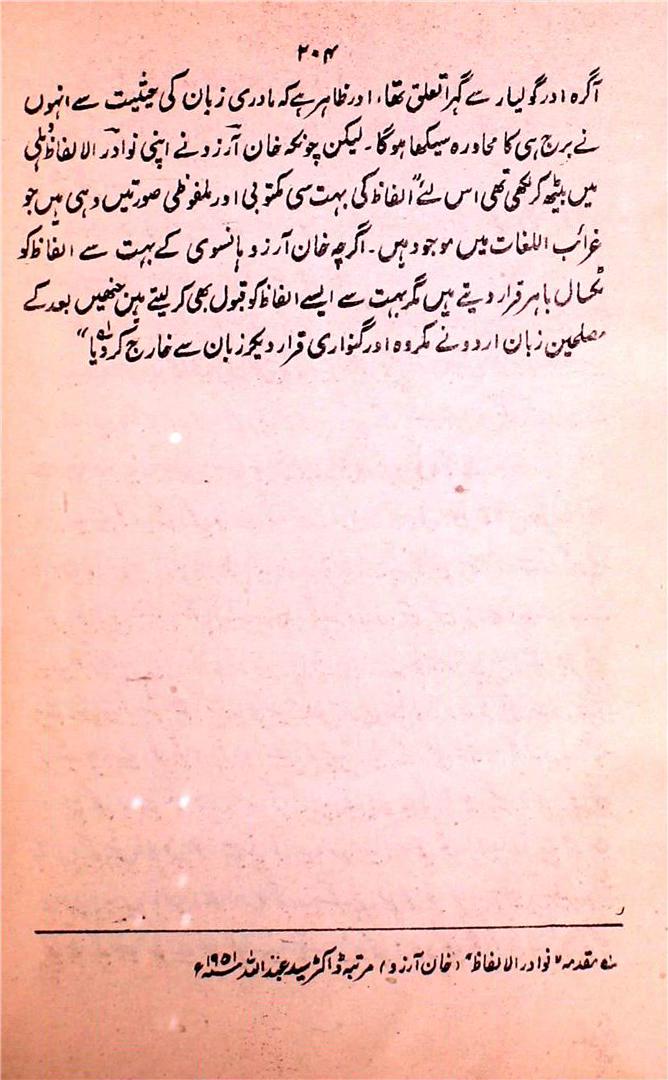 ۲۰۴
آگرہ اور گوالیار سے گہرا تعلق تھا، اور ظاہر ہے کہ مادری زبان کی حیثیت سے انہوں
نے برج ہی کا محاورہ سیکھا ہوگا۔ لیکن چونکہ خان آرزو نے اپنی نوادر الالفاظ دہلی
میں بیٹھ کر لکھی تھی اس لئے "الفاظ کی بہت سی مکتوبی اور ملفوظی صورتیں وہی ہیں جو
غرائب اللغات میں موجود ہیں۔ اگرچہ خان آرزو ہانسوی کے بہت سے الفاظ کو
ٹکسال باہر قرار دیتے ہیں مگر بہت سے ایسے الفاظ کو قبول بھی کر لیتے ہیں جنھیں بعد کے
مصلحین زبان اردو نے مکروہ اور گنواری قرار دیکر زبان سے خارج کر دیا"؂۱
؂۱ مقدمہ "نوادر الالفاظ" (خان آرزو) مرتبہ ڈاکٹر سید عبداللہ ۱۹۵۱ء